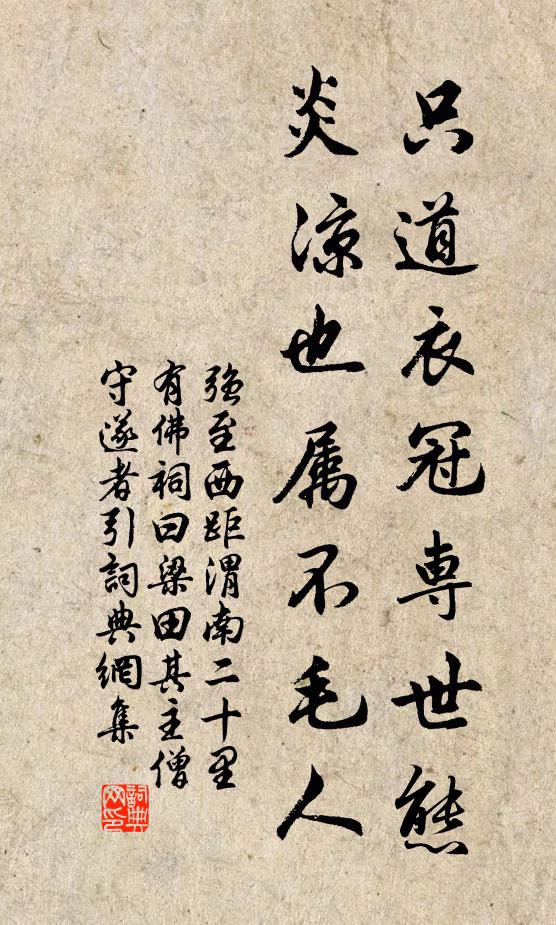 只道衣冠専世態
炎凉也属不毛人
强至西距渭南二十里
有佛祠曰梁田其主僧
守遂者引詞典網集
詞典网印